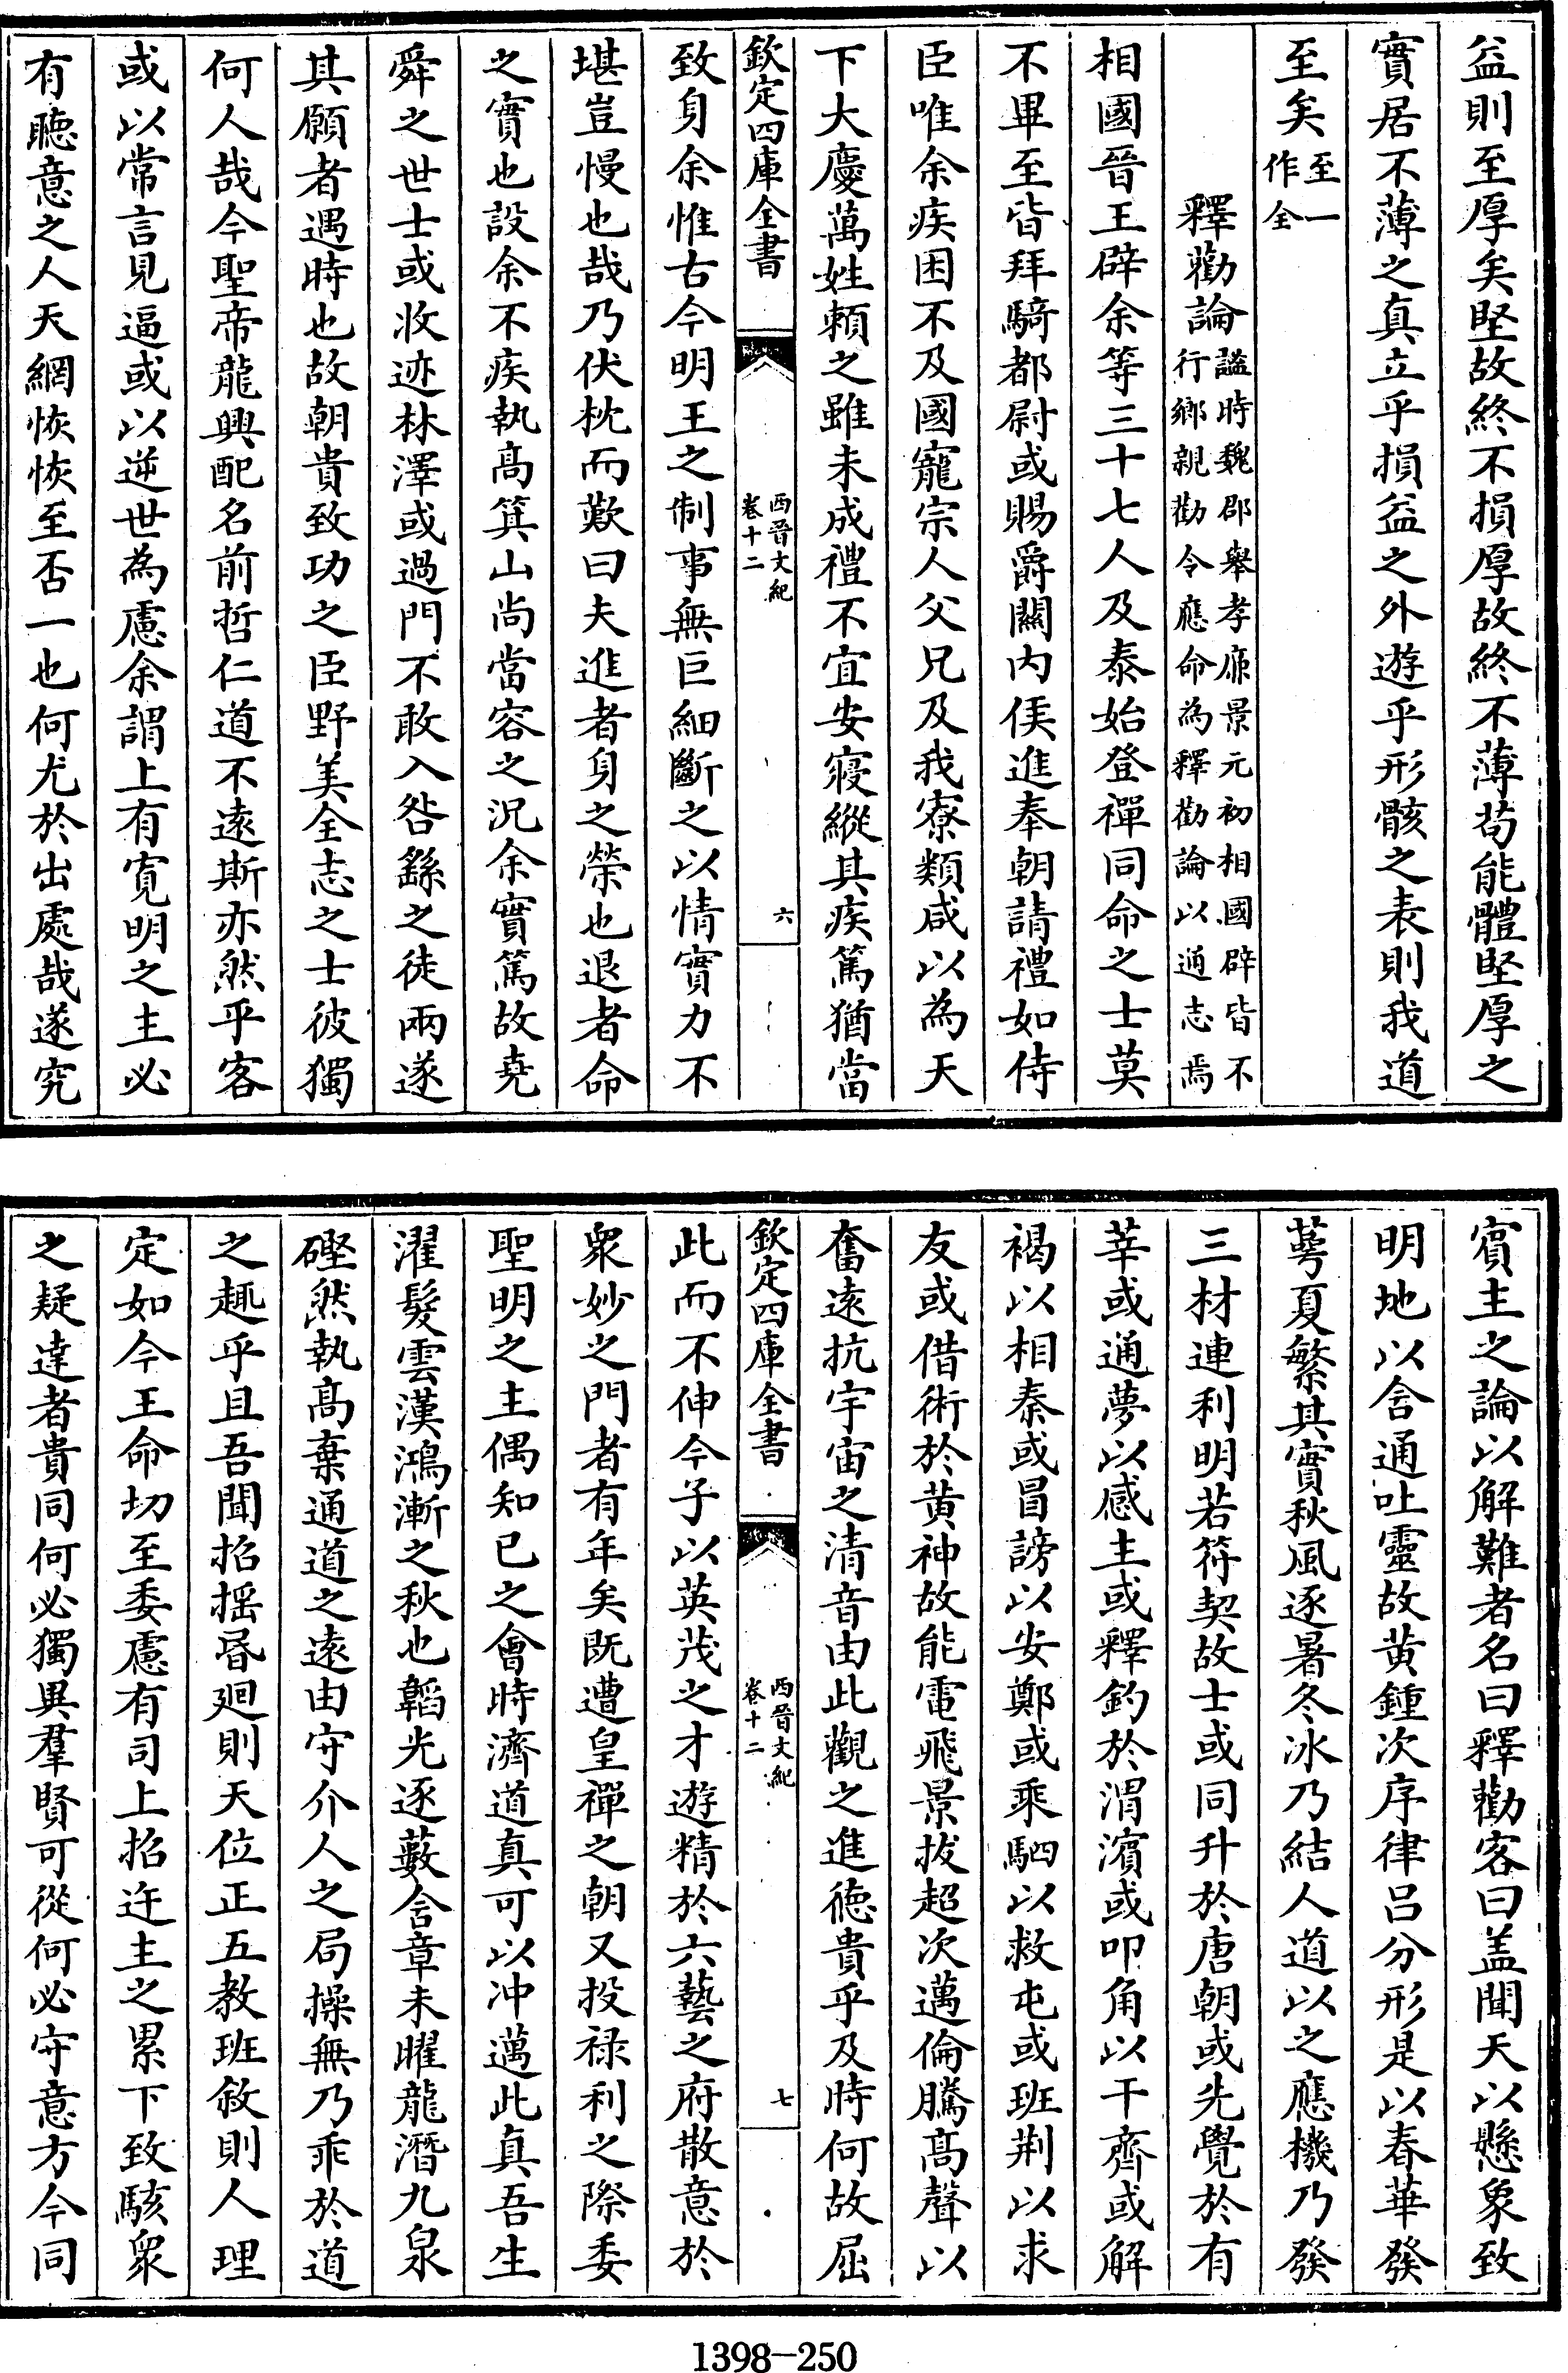 益則至厚矣堅故終不損厚故終不薄茍能體堅厚之
實居不薄之真立乎損益之外遊乎形骸之表則我道
至矣至一作全
釋勸論謐時魏郡舉孝廉景元初相國辟皆不行鄉親勸令應命為釋勸論以通志焉
相國晉王辟余等三十七人及泰始登禪同命之士莫
不畢至皆拜騎都尉或賜爵關內侯進奉朝請禮如侍
臣唯余疾困不及國寵宗人父兄及我寮類咸以為天
下大慶萬姓賴之雖未成禮不宜安寢縱其疾篤猶當
欽定四庫全書
西晉文紀
卷十二
六
致身余惟古今明王之制事無巨細斷之以情實力不
堪豈慢也哉乃伏枕而歎曰夫進者身之榮也退者命
之實也設余不疾執高箕山尚當容之況余實篤故堯
舜之世士或收迹林澤或過門不敢入咎繇之徒兩遂
其願者遇時也故朝貴致功之臣野美全志之士彼獨
何人哉今聖帝龍興配名前哲仁道不遠斯亦然乎客
或以常言見逼或以逆世為慮余謂上有寛明之主必
有聽意之人天網恢恢至否一也何尤於出處哉遂究
賓主之論以解難者名曰釋勸客曰盖聞天以懸象致
明地以含通吐靈故黄鍾次序律呂分形是以春華發
萼夏繁其實秋風逐暑冬冰乃結人道以之應機乃發
三材連利明若符契故士或同升於唐朝或先覺於有
莘或通夢以感主或釋釣於渭濱或叩角以干齊或解
褐以相秦或冒謗以安鄭或乘駟以救屯或班荆以求
友或借術於黄神故能電飛景拔超次邁倫騰高聲以
奮遠抗宇宙之清音由此觀之進德貴乎及時何故屈
欽定四庫全書
西晉文紀
卷十二
七
此而不伸今子以英茂之才遊精於六藝之府散意於
衆妙之門者有年矣既遭皇禪之朝又投禄利之際委
聖明之主偶知已之會時濟道真可以冲邁此真吾生
濯髮雲漢鴻漸之秋也韜光逐藪含章未曜龍潛九泉
硜然執高棄通道之遠由守介人之局操無乃乖於道
之趣乎且吾聞招揺昬廻則天位正五教班敘則人理
定如今王命切至委慮有司上招迕主之累下致駭衆
之疑達者貴同何必獨異羣賢可從何必守意方今同
1398-250